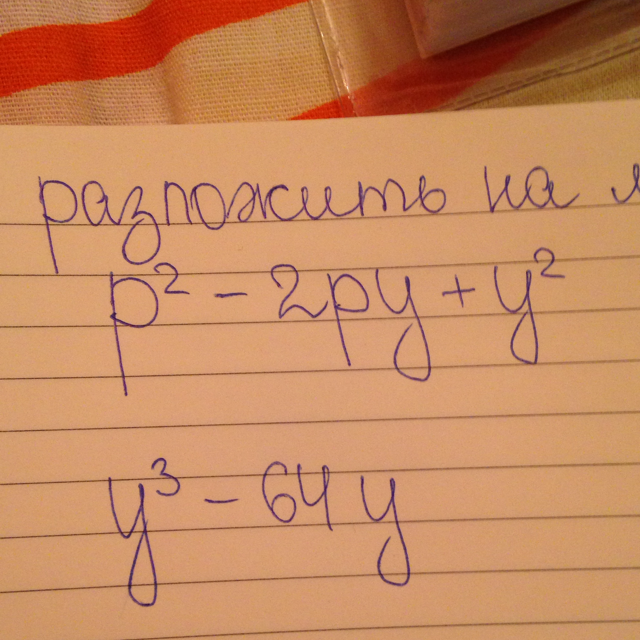 разложить на
p² - 2py + y²
y³ - 64y